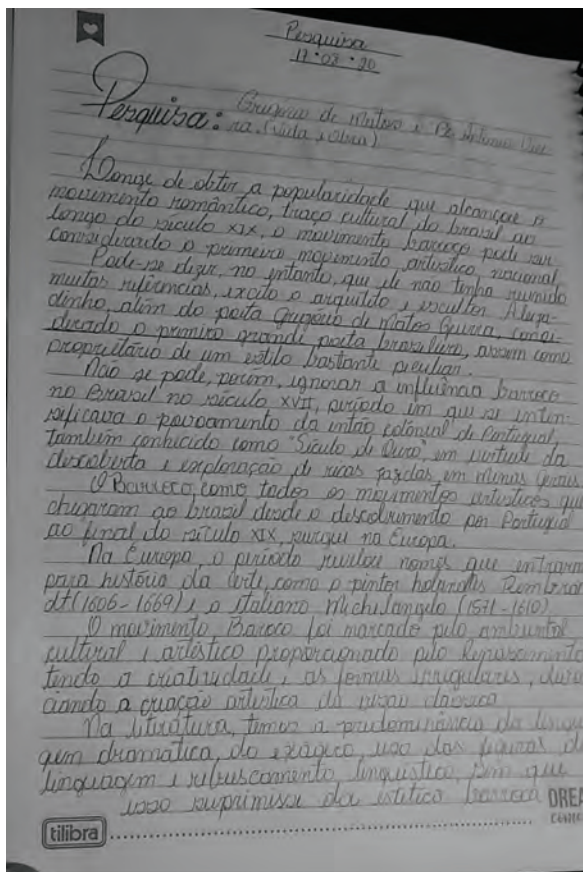 Pesquisa
17.08.20
Pesquisa: Gregorio de Matos e Pe Antonio Viei
ra. (Vida e Obra)
Longe de obter a popularidade que alcançou o
movimento romântico, traço cultural do brasil ao
longo do século XIX, o movimento barroco pode ser
considerado o primeiro movimento artistico nacional,
Pode-se dizer, no entanto, que ele não tenha reunido
muitas referencias, exceto o arquiteto e escultor Aleija-
dinho, além do poeta Gregório de Matos Guerra, consi-
derado o primeiro grande poeta brasileiro, assim como
proprietário de um estilo bastante peculiar.
Não se pode, porém, ignorar a influência barroca
no Brasil no século XVII, período em que se inten-
sificava o povoamento da então colônial de Portugual,
também conhecido como "Século de Ouro", em virtude da
descoberta e exploração de ricas jazidas em Minas Gerais
O Barroco, como todos os movimentos artisticos que
chegaram ao brasil desde o descobrimento por Portugal
ao final do século XIX, surgiu na Europa.
Na Europa, o período revelou nomes que entraram
para história da arte, como o pintor holandês Rembran
dt (1606-1669) e o italiano Michelangelo (1571-1610)
O movimento Baroco foi marcado pelo ambiental
cultural e artístico proporcionado pelo Renascimento
tendo a criatividade, as formas irregulares,
ciando a criação artistica da visao clássica
Na literatura, temos a predominância da lingua
gem dramatica, do exagero, uso das figuras de
linguagem e rebuscamento linguistico, sem que
isso suprimisse da estetica barroca
tilibra
DREA